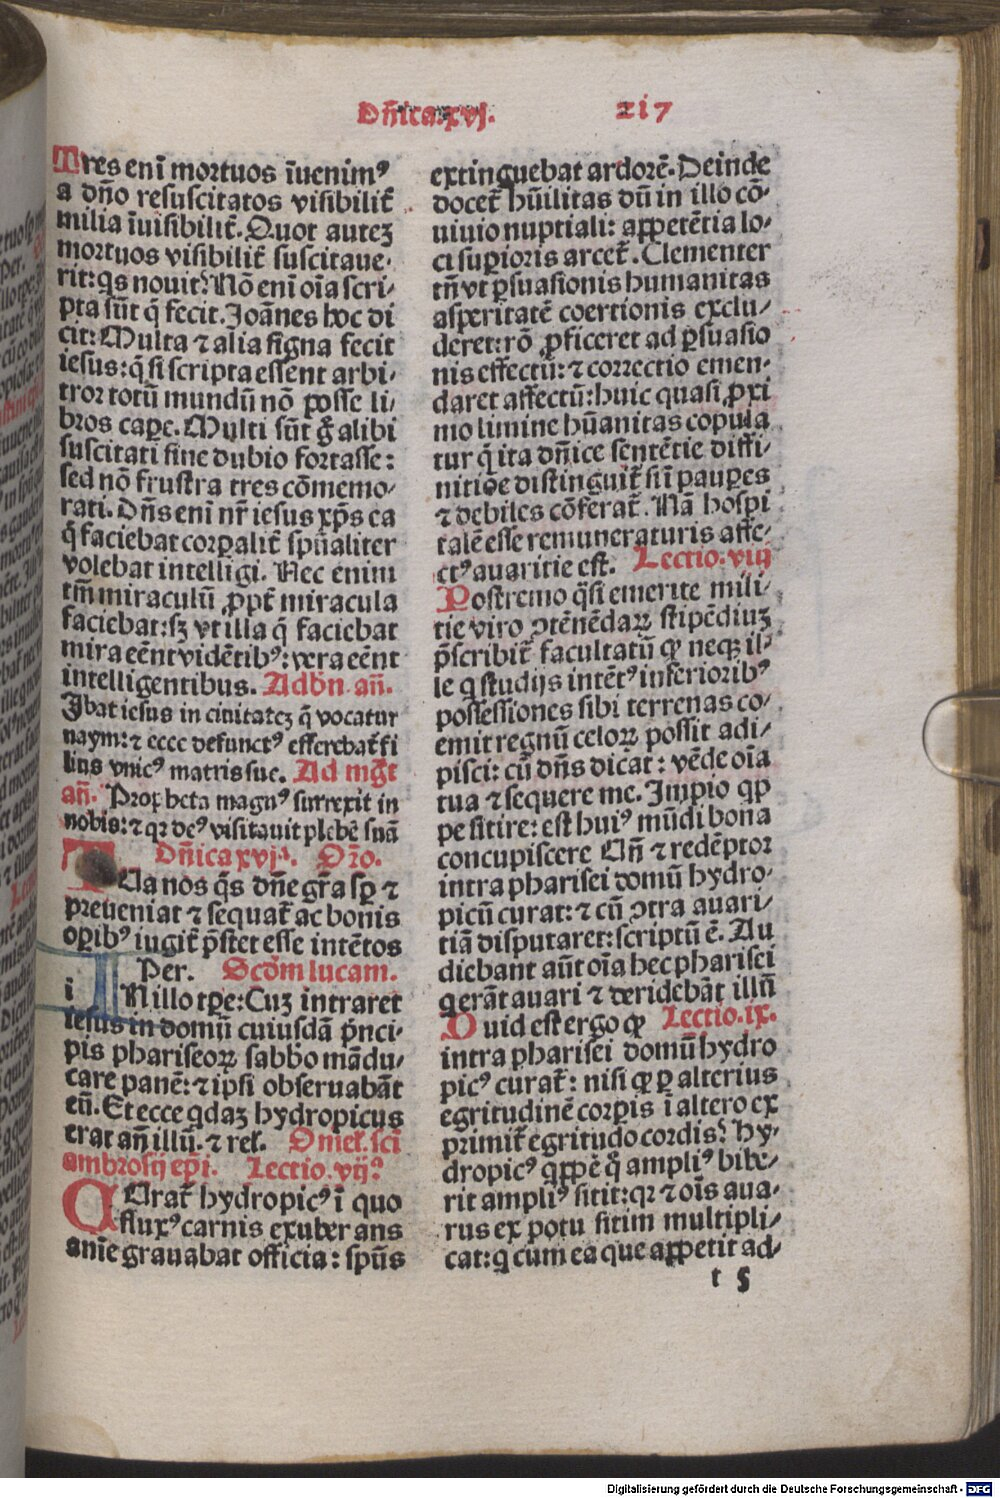 Dn̄ica.xvj. 217
Tres enī mortuos īuenimꝰ
a dn̄o resuscitatos visibilit̄
milia īuisibilit̄. Quot autez
mortuos visibilit̄ suscitaue-
rit: q̄s nouit? Nō enī oīa scri/
pta sūt q̄ fecit. Joānes hoc di
cit: Multa ⁊ alia signa fecit
iesus: q̄ si scripta essent arbi/
tror totū mundū nō posse li/
bros caꝑe. Multi sūt g̊ alibi
suscitati sine dubio fortasse:
sed nō frustra tres cōmemo/
rati. Dn̄s enī nr̄ iesus xp̄s ea
q̄ faciebat corꝑalit̄ spūaliter
volebat intelligi. Nec enim
tm̄ miraculū ꝓpt̄ miracula
faciebat: sꝫ vt illa q̄ faciebat
mira eēnt vidētibꝰ: vera eēnt
intelligentibus. Ad bn̄. an̄.
Ibat iesus in ciuitatez q̄ vocatur
naym: ⁊ ecce defunctꝰ efferebat̄ fi
lius vnicꝰ matris sue. Ad mḡt
an̄. Propheta magnꝰ surrexit in
nobis: ⁊ qꝛ deꝰ visitauit plebē suā
Dn̄ica xvjꝰ. Oꝛ̄o.
TUa nos q̄s dn̄e gr̄a sꝑ ⁊
preueniat ⁊ sequat̄ ac bonis
oꝑibꝰ iugit̄ p̄stet esse intētos
Per. Scd̄m lucam.
i Nillo tꝑe: Cuz intraret
iesus in domū cuiusdā p̄nci-
pis phariseoꝝ sabbo mādu/
care panē: ⁊ ipsi obseruabāt
eū. Et ecce qdaz hydropicus
erat an̄ illū. ⁊ rel. Omel. sci
ambrosij ep̄i. Lectio. vij?
CUrat̄ hydropicꝰ ī quo
fluxꝰ carnis exuberans
anīe grauabat officia: spūs
extinguebat ardorē. Deinde
docet̄ hūilitas dū in illo cō-
uiuio nuptiali: appetētia lo-
ci suꝑioris arcet̄. Clementer
tn̄ vt ꝑsuasionis humanitas
asperitatē coertionis exclu/
deret: rō ꝓficeret ad ꝑsuasio
nis effectū: ⁊ correctio emen-
daret affectū: huic quasi ꝓxi
mo limine hūanitas copula
tur q̄ ita dn̄ice sentētie diffi-
nitiōe distinguit̄ si ī pauꝑes
⁊ debiles cōferat̄. Nā hospi
talē esse remuneraturis affe-
ctꝰ auaritie est. Lectio. viij
Postremo q̄si emerite mili-
tie viro ꝯtēnēdaꝝ stipēdiuz
p̄scribit̄ facultatū ꝙ neqꝫ il-
le q studijs intētꝰ inferioribꝰ
possessiones sibi terrenas co/
emit regnū celoꝝ possit adi/
pisci: cū dn̄s dicat: vēde oīa
tua ⁊ sequere me. Impio qꝑ
pe sitire: est huiꝰ mūdi bona
concupiscere Un̄ ⁊ redēptoꝛ
intra pharisei domū hydro-
picū curat: ⁊ cū ꝯtra auari/
tiā disputaret: scriptū ē. Au
diebant aūt oīa hec pharisei
q erāt auari ⁊ deridebāt illū
Quid est ergo ꝙ Lectio. ix.
intra pharisei domū hydro
picꝰ curat̄: nisi ꝙ ꝑ alterius
egritudinē corꝑis ī altero ex
primit̄ egritudo cordis? Hy-
dropicꝰ qꝑpē q̊ ampliꝰ bibe/
rit ampliꝰ sitit: qꝛ ⁊ oīs aua-
rus ex potu sitim multipli/
cat: q cum ea que appetit ad/
t 5
Digitalisierung gefördert durch die Deutsche Forschungsgemeinschaft - DFG